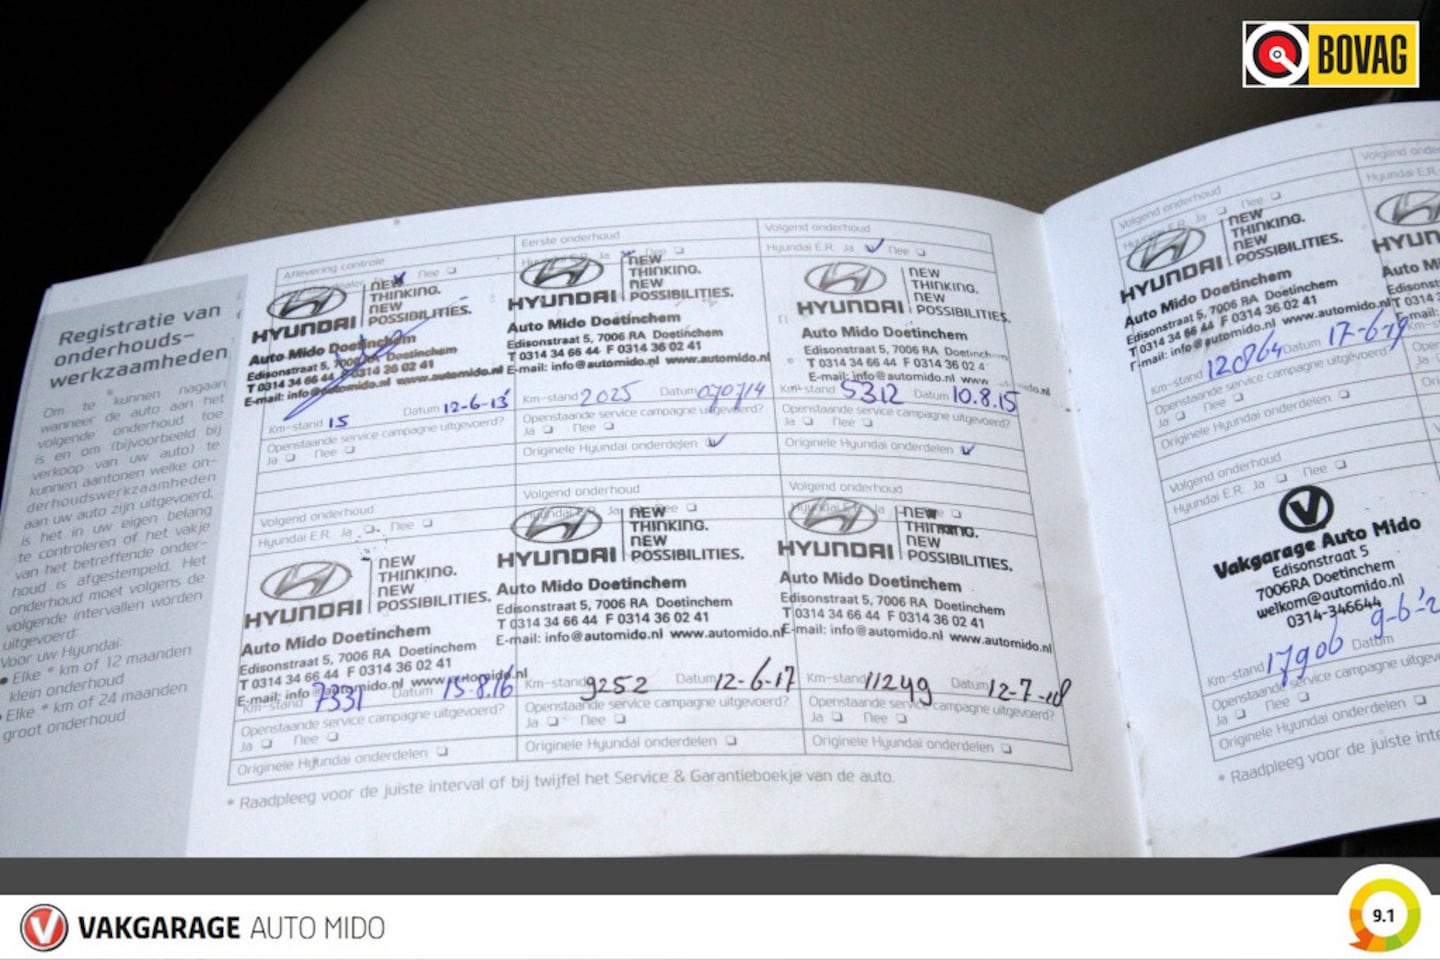 BOVAG
Registratie van
onderhouds-
werkzaamheden
Om te kunnen nagaan
wanneer de auto aan het
volgende onderhoud toe
is en om (bijvoorbeeld bij
verkoop van uw auto) te
kunnen aantonen welke on-
derhoudswerkzaamheden
aan uw auto zijn uitgevoerd,
is het in uw eigen belang
te controleren of het vakje
van het betreffende onder-
houd is afgestempeld. Het
onderhoud moet volgens de
volgende intervallen worden
uitgevoerd:
Voor uw Hyundai:
• Elke * km of 12 maanden
klein onderhoud
• Elke * km of 24 maanden
groot onderhoud
Aflevering controle
Nee
NEW
THINKING.
NEW
POSSIBILITIES.
HYUNDAI
Auto Mido Doetinchem
Edisonstraat 5, 7006 RA Doetinchem
T 0314 34 66 44 F 0314 36 02 41
E-mail: info@automido.nl www.automido.nl
Km-stand 15 Datum 12-6-13
Openstaande service campagne uitgevoerd?
Ja Nee
Eerste onderhoud
Hyundai E.R. Ja Nee
NEW
THINKING.
NEW
POSSIBILITIES.
HYUNDAI
Auto Mido Doetinchem
Edisonstraat 5, 7006 RA Doetinchem
T 0314 34 66 44 F 0314 36 02 41
E-mail: info@automido.nl www.automido.nl
Km-stand 2025 Datum 070714
Openstaande service campagne uitgevoerd?
Ja Nee
Originele Hyundai onderdelen
Volgend onderhoud
Hyundai E.R. Ja Nee
NEW
THINKING.
NEW
POSSIBILITIES.
HYUNDAI
Auto Mido Doetinchem
Edisonstraat 5, 7006 RA Doetinchem
T 0314 34 66 44 F 0314 36 02 4
E-mail: info@automido.nl www mido.nl
Km-stand 5312 Datum 10.8.15
Openstaande service campagne uitgevoerd?
Ja Nee
Originele Hyundai onderdelen
Volgend onderhoud
Hyundai E.R. Ja Nee
NEW
THINKING.
NEW
POSSIBILITIES.
HYUNDAI
Auto Mido Doetinchem
Edisonstraat 5, 7006 RA Doetinchem
T 0314 34 66 44 F 0314 36 02 41
E-mail: info@automido.nl www.automido.nl
Km-stand 7331 Datum 15-8-16
Openstaande service campagne uitgevoerd?
Ja Nee
Originele Hyundai onderdelen
Volgend onderhoud
Hyundai E.R. Ja Nee
NEW
THINKING.
NEW
POSSIBILITIES.
HYUNDAI
Auto Mido Doetinchem
Edisonstraat 5, 7006 RA Doetinchem
T 0314 34 66 44 F 0314 36 02 41
E-mail: info@automido.nl www.automido.nl
Km-stand 9252 Datum 12-6-17
Openstaande service campagne uitgevoerd?
Ja Nee
Originele Hyundai onderdelen
Volgend onderhoud
NEW
THINKING.
NEW
POSSIBILITIES.
HYUNDAI
Auto Mido Doetinchem
Edisonstraat 5, 7006 RA Doetinchem
T 0314 34 66 44 F 0314 36 02 41
E-mail: info@automido.nl www.automido.nl
Km-stand 11249 Datum 12-7-18
Openstaande service campagne uitgevoerd?
Ja Nee
Originele Hyundai onderdelen
* Raadpleeg voor de juiste interval of bij twijfel het Service & Garantieboekje van de auto.
Volgend onderhoud
Hyundai E.R. Ja Nee
NEW
THINKING.
NEW
POSSIBILITIES.
HYUNDAI
Auto Mido Doetinchem
Edisonstraat 5, 7006 RA Doetinchem
T 0314 34 66 44 F 0314 36 02 41
E-mail: info@automido.nl www.automido.nl
Km-stand 120864 Datum 17-6-19
Openstaande service campagne uitgevoerd?
Ja Nee
Originele Hyundai onderdelen
Volgend onderhoud
Hyundai E.R. Ja Nee
Vakgarage Auto Mido
Edisonstraat 5
7006RA Doetinchem
welkom@automido.nl
0314-346644
Km-stand 17906 Datum 9-6-2
Openstaande service campagne uitgevoe
Ja Nee
Originele Hyundai onderdelen
* Raadpleeg voor de juiste inte
Volgend onderho
Hyundai E.R.
HYUN
Auto Mi
Edisonst
T 0314 3
E-mail:
VAKGARAGE AUTO MIDO
9.1